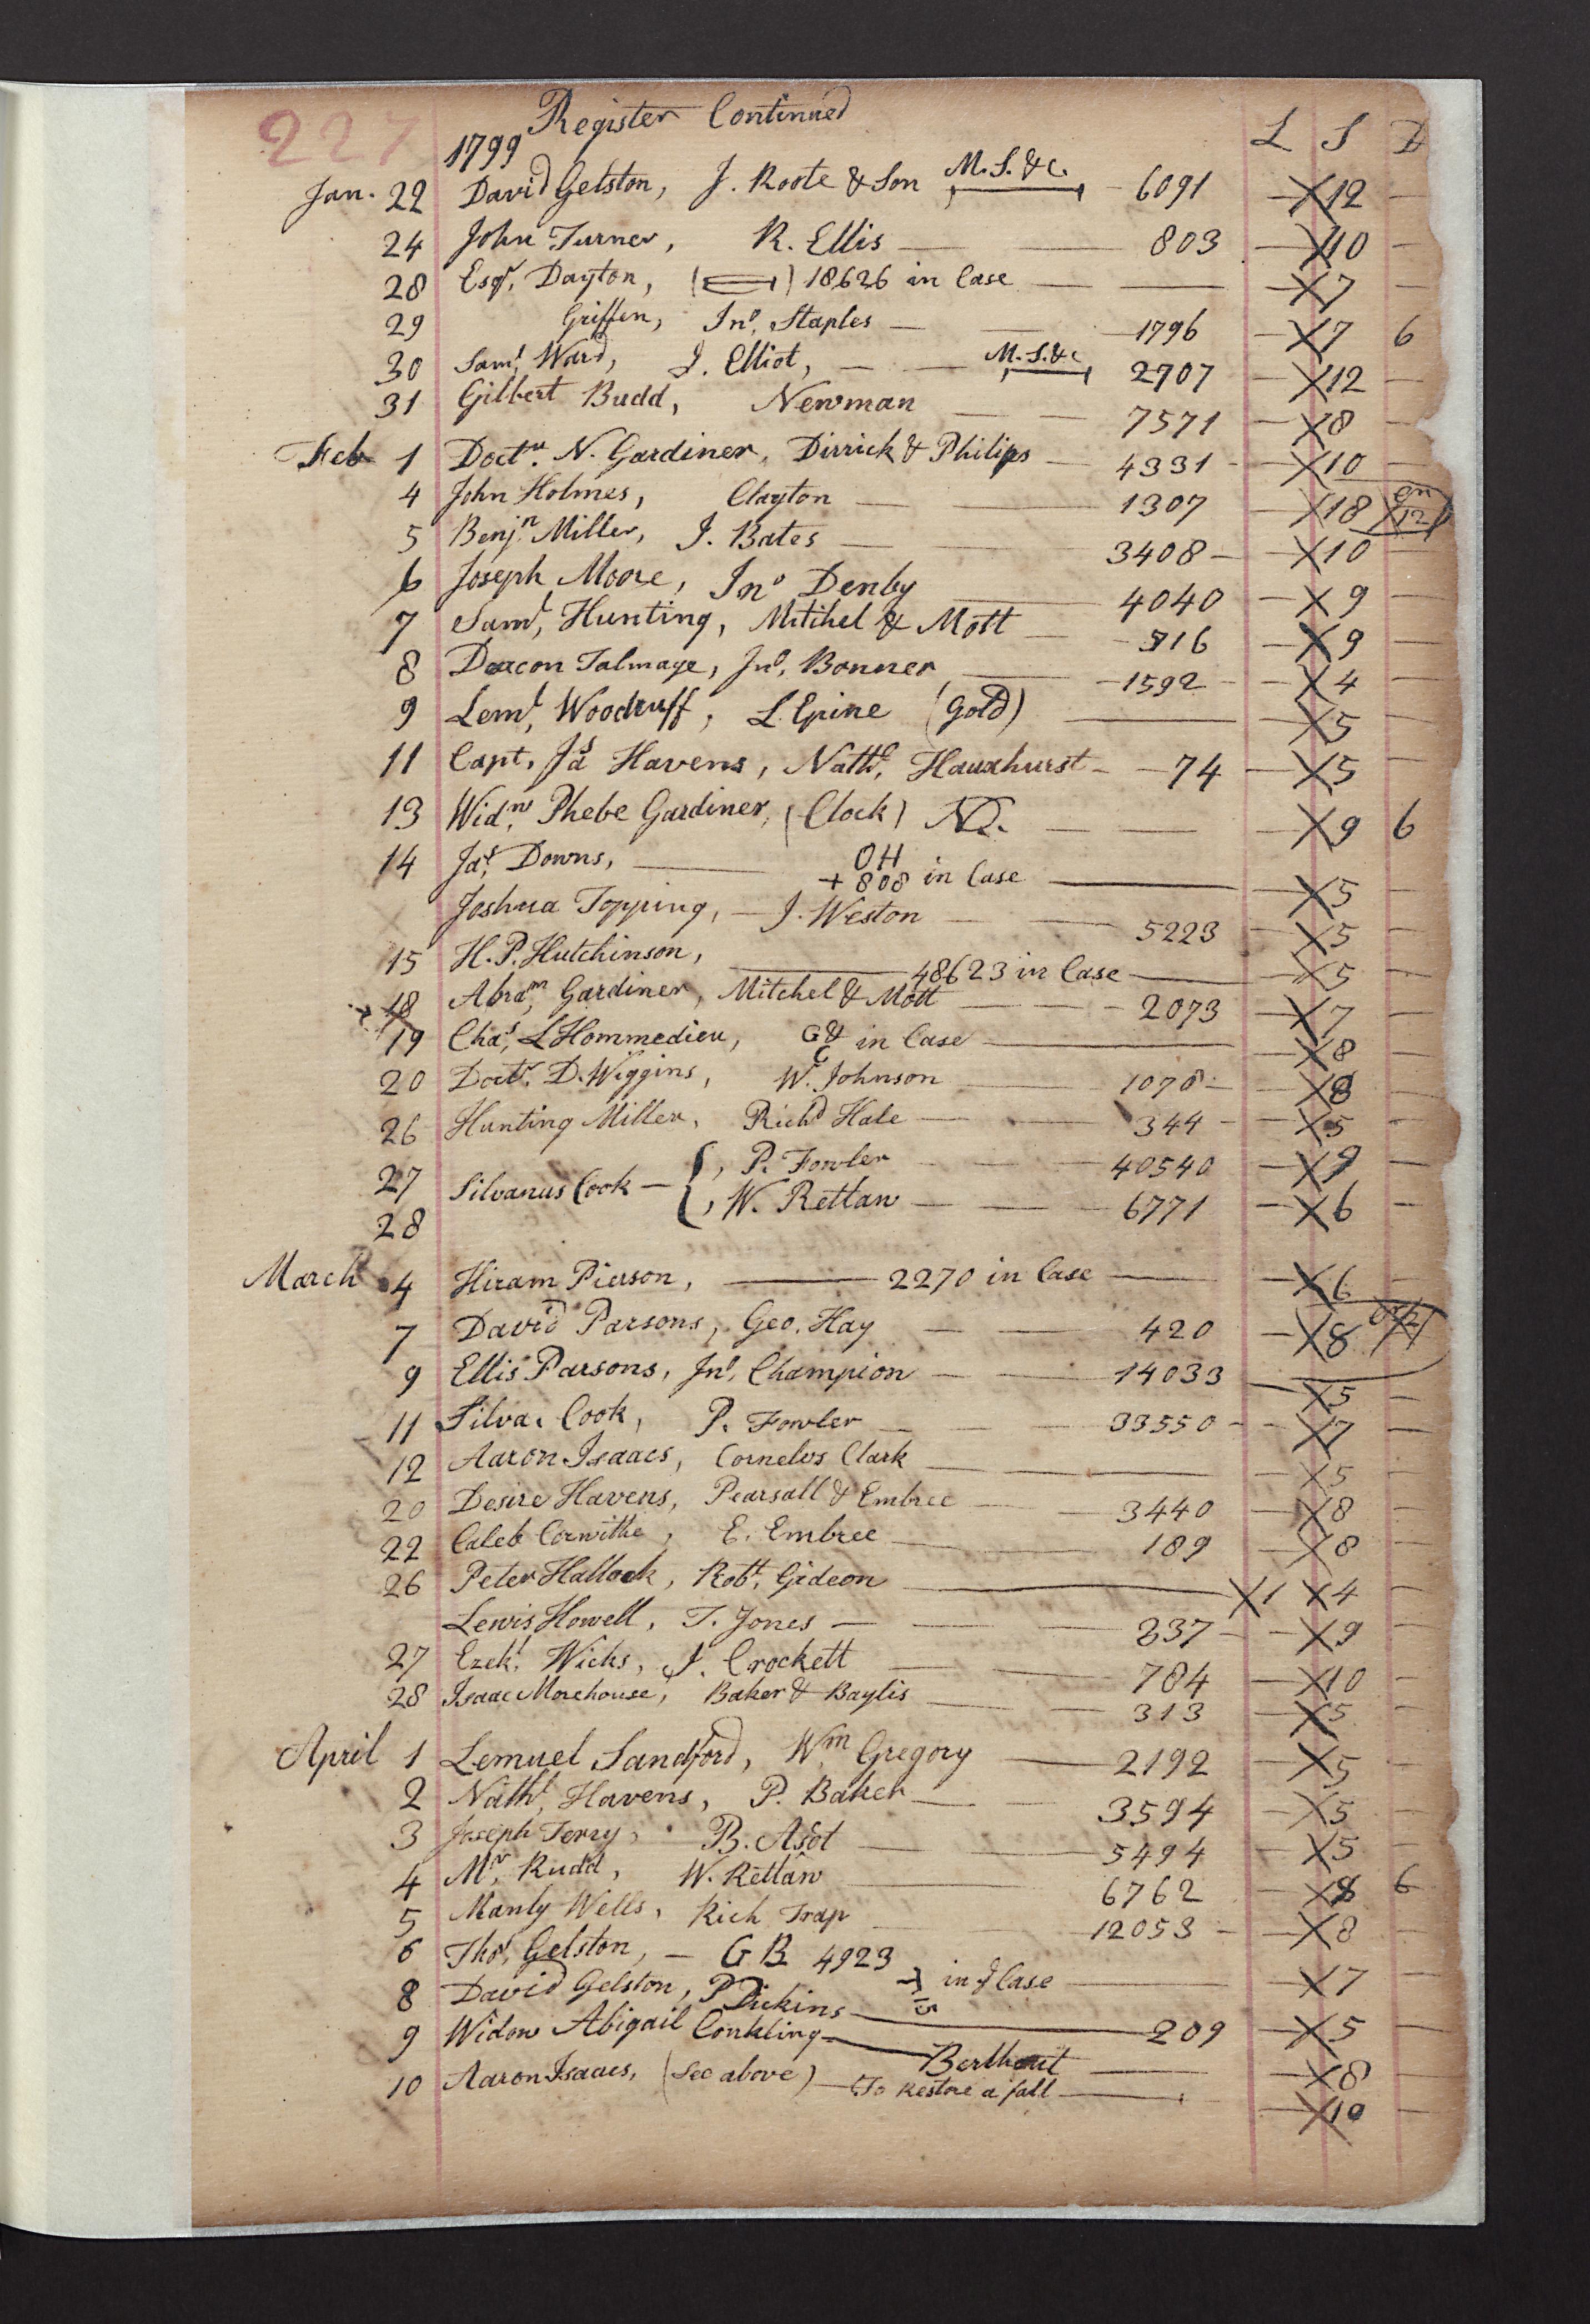 227
Register Continued
1799 L S D
Jan. 22 David Gelston, J. Roote & Son M.S.&c. 6091 — X 12 —
24 John Turner, R. Ellis — — 803 — X 10 —
28 Esqr. Dayton, ( ) 18626 in Case — — — X 7 —
29 Griffen, Jno. Staples — — 1796 — X 7 6
30 Saml. Ward, J. Elliot, — — M.S.&c 2707 — X 12 —
31 Gilbert Budd, Newman — — 7571 — X 8 —
Feb 1 Doctr. N. Gardiner, Dirrick & Philips — 4331 — X 10 —
4 John Holmes, Clayton — — 1307 — X 18 X 12
5 Benjn. Miller, J. Bates — — 3408 — X 10 —
6 Joseph Moore, Jno Denby — 4040 — X 9 —
7 Saml, Hunting, Mitchel & Mott — 916 — X 9 —
8 Deacon Talmage, Jno. Bonner — 1592 — X 4 —
9 Leml, Woodruff, L. Epine (Gold) — — X 5 —
11 Capt. Jas Havens, Nathl. Hauxhurst — 74 — X 5 —
13 Widw. Phebe Gardiner, (Clock) — — — X 9 6
14 Jas, Downs, — OH
+ 808 in Case — — X 5 —
Joshua Topping, — J. Weston — — 5223 — X 5 —
15 H. P. Hutchinson, — 48623 in Case — — X 5 —
18 Abram, Gardiner, Mitchel & Mott — — 2073 — X 7 —
19 Chas, L'Hommedieu, G& C in Case — — X 8 —
20 Doctr. D. Wiggins, W. Johnson — 1078 — X 8 —
26 Hunting Miller, Richd Hale — — 344 — X 5 —
27 Silvanus Cook — { , P. Fowler — — 40540 — X 9 —
28 , W. Rettan — — 6771 — X 6 —
March 4 Hiram Pierson, — 2270 in Case — — X 6 —
7 David Parsons, Geo. Hay — — 420 — X 8
9 Ellis Parsons, Jno. Champion — — 14033 — X 5 —
11 Silva. Cook, P. Fowler — — 33550 — X 7 —
12 Aaron Isaacs, Cornelus Clark — — — X 5 —
20 Desire Havens, Pearsall & Embree — — 3440 — X 8 —
22 Caleb Corwithe, E. Embree — — 189 — X 8 —
26 Peter Hallock, Robt. Gideon — X 1 X 4 —
Lewis Howell, T. Jones — — — 237 — X 9 —
27 Ezekl. Wicks, J. Crockett — — 784 — X 10 —
28 Isaac Morehouse, Baker & Baylis — — 313 — X 5 —
April 1 Lemuel Sandford, Wm Gregory — 2192 — X 5 —
2 Nathl, Havens, P. Baker — — 3594 — X 5 —
3 Joseph Terry, B. Asot — — 5494 — X 5 —
4 Mr. Rudd, W. Rettan — 6762 — X 8 6
5 Manly Wells, Rich Trap — — 12053 — X 8 —
6 Thos. Gelston, — GB 4923 in Case — — X 7 —
8 David Gelston, P Dickins — 209 — X 5 —
9 Widow Abigail Conkling — Berthout — — X 8 —
10 Aaron Isaacs, (See above) — To Restore a fall — — X 10 —